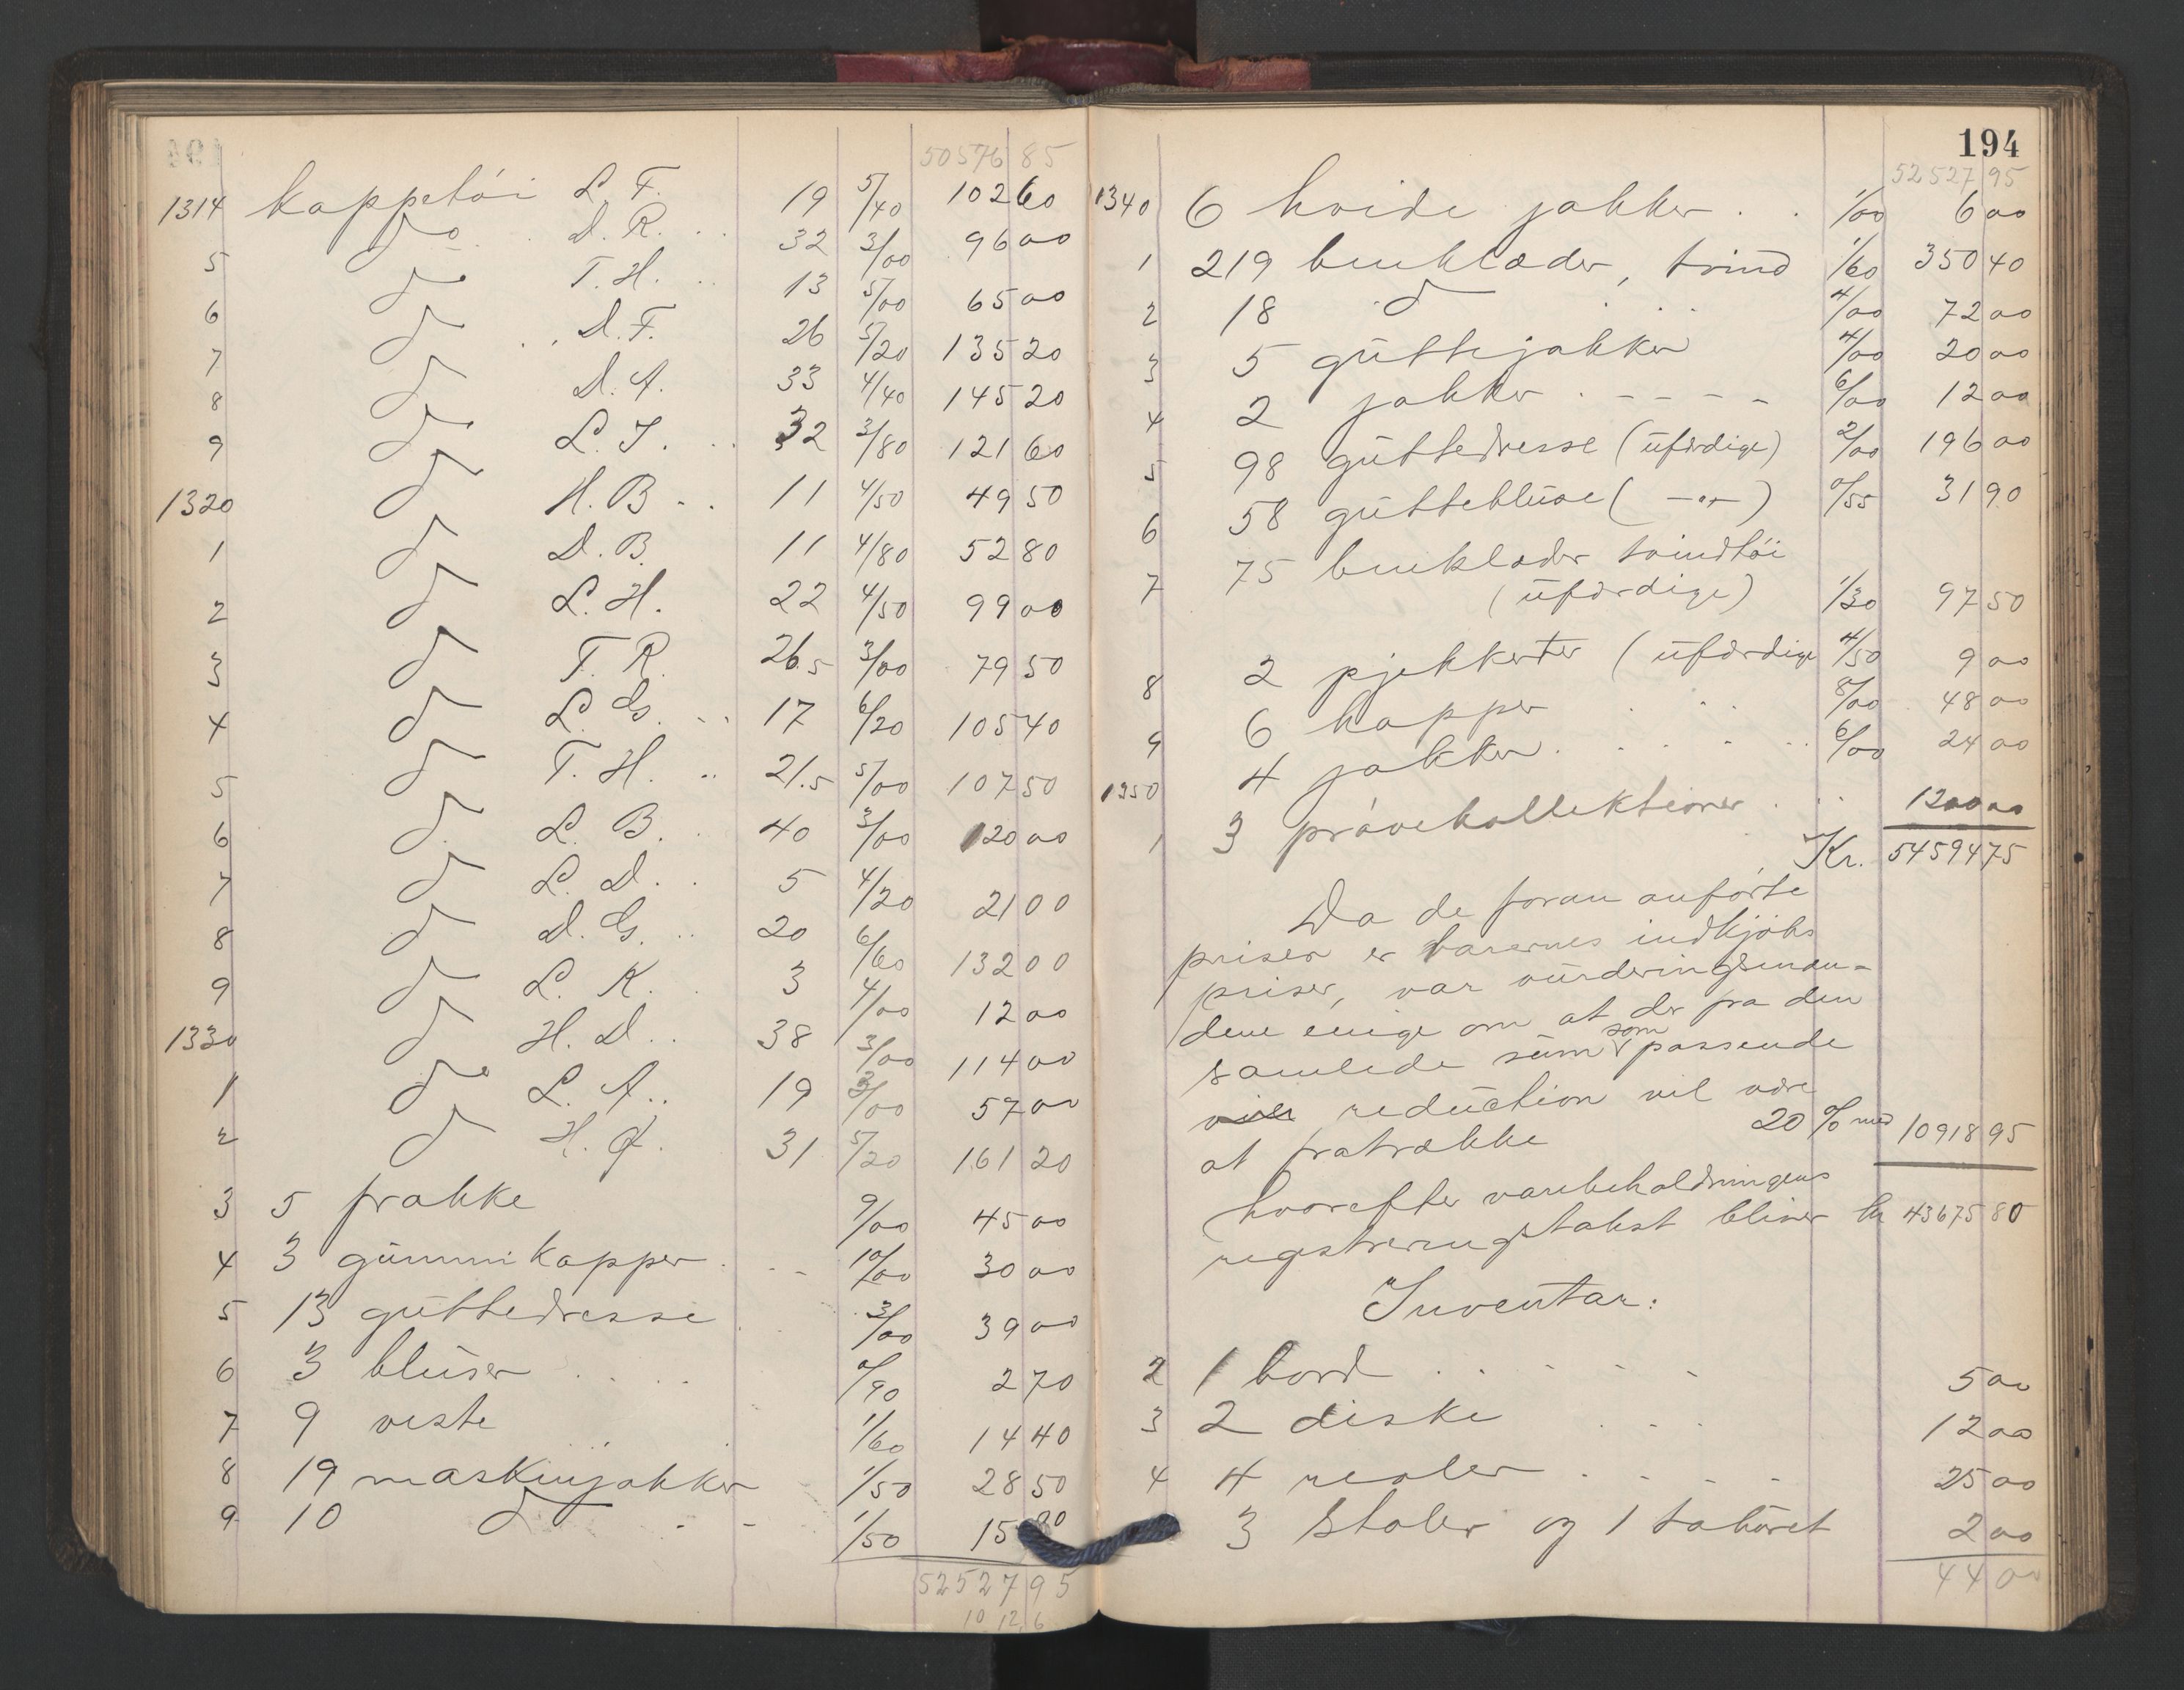 50576 85
1314 kappetöi L. F. 19 5/40 102 60
do D. R. .. 32 3/00 96 00
5 do T. H. .. 13 5/00 65 00
6 do .. D. F. 26 5/20 135 20
7 do D. A. 33 4/40 145 20
8 do L. J. .. 32 3/80 121 60
9 do H. B. .. 11 4/50 49 50
1320 do D. B. 11 4/80 52 80
1 do L. H. 22 4/50 99 00
2 do T. R. 26.5 3/00 79 50
3 do L. G. .. 17 6/20 105 40
4 do T. H. .. 21.5 5/00 107 50
5 do L. B. . 40 3/00 120 00
6 do L. D. . 5 4/20 21 00
7 do D. G. .. 20 6/60 132 00
8 do L. K. . 3 4/00 12 00
9 do H. D. .. 38 3/00 114 00
1330 do L. A. .. 19 3/00 57 00
1 do H. J. 31 5/20 161 20
2
3 5 frakke 9/00 45 00
4 3 gümmikapper . -- 10/00 30 00
5 13 güttedresse 3/00 39 00
6 3 blüser .... 0/90 2 70
7 9 veste 1/60 14 40
8 19 maskinjakker 1/50 28 50
9 10 do - - 1/50 15 00
52527 95
10 12 6
194
52527 95
1340 6 hvide jakker . . 1/00 6 00
1 219 benklæder, tvind 1/60 350 40
2 18 do . .. 4/00 72 00
3 5 güttejakker 4/00 20 00
4 2 jakker . - - - - 6/00 12 00
5 98 güttedresse (üfærdige) 2/00 196 00
6 58 gütteblüse ( -"- ) 0/55 31 90
7 75 benklæder tvindtöi
(üfærdige) 1/30 97 50
8 2 pjekkerter (üfærdige 4/50 9 00
9 6 kapper . . . 8/00 48 00
1350 4 jakker . . . . .. 6/00 24 00
1 3 prövekollektioner . .. 1200 00
Kr. 54594 75
Da de foran anförte
priser er varernes indkjöbs
priser, var vürderingsmæn-
dene enige om at der fra den
samlede süm som passende
reduction vil være
at fratrække 20 % med 10918 95
hvorefter varebeholdningens
registreringstakst bliver kr 43675 80
Inventar:
2 1 bord . . - - - 5 00
3 2 diske . . . 12 00
4 4 reoler . - - - 25 00
3 stoler og 1 taburet 2 00
44 00